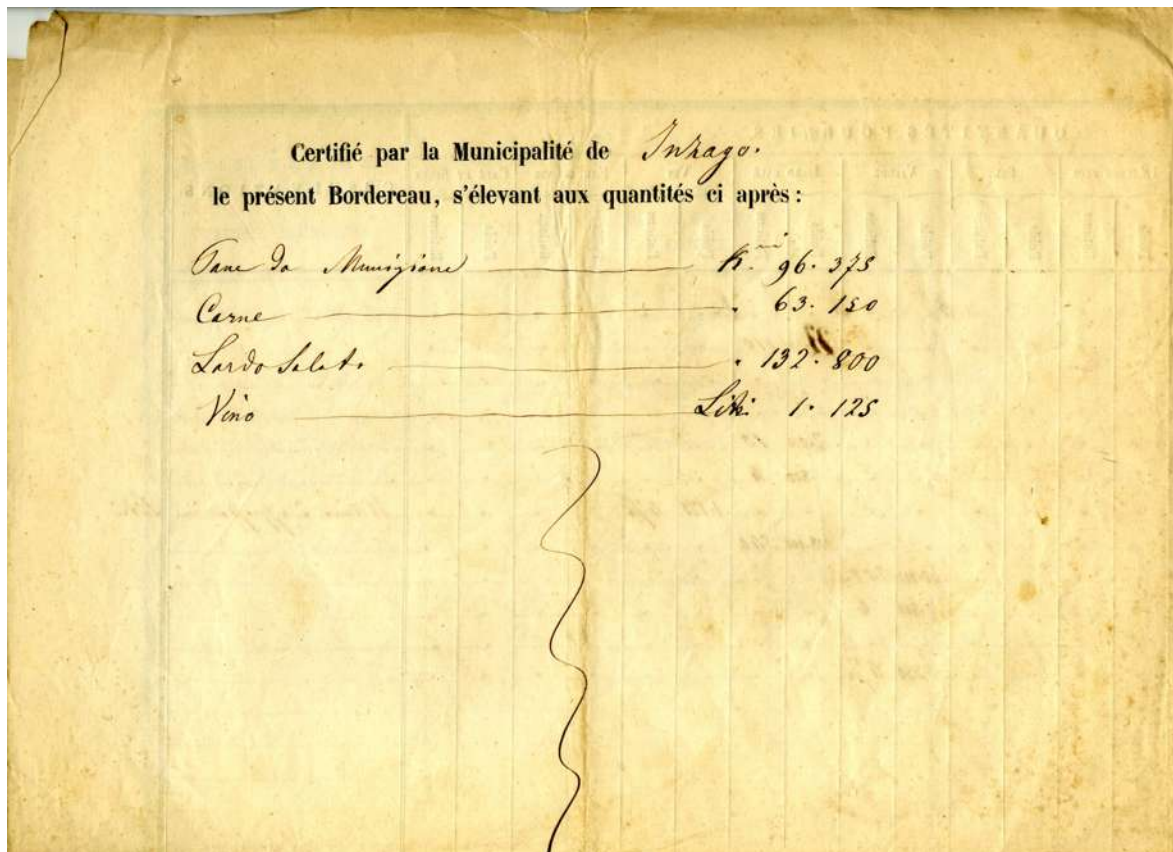 Certifié par la Municipalité de Inzago.
le présent Bordereau, s'élevant aux quantités ci après :
Pane da Munizione K.mi 96. 375
Carne " 63. 150
Lardo Salato " 132. 800
Vino Litri 1. 125